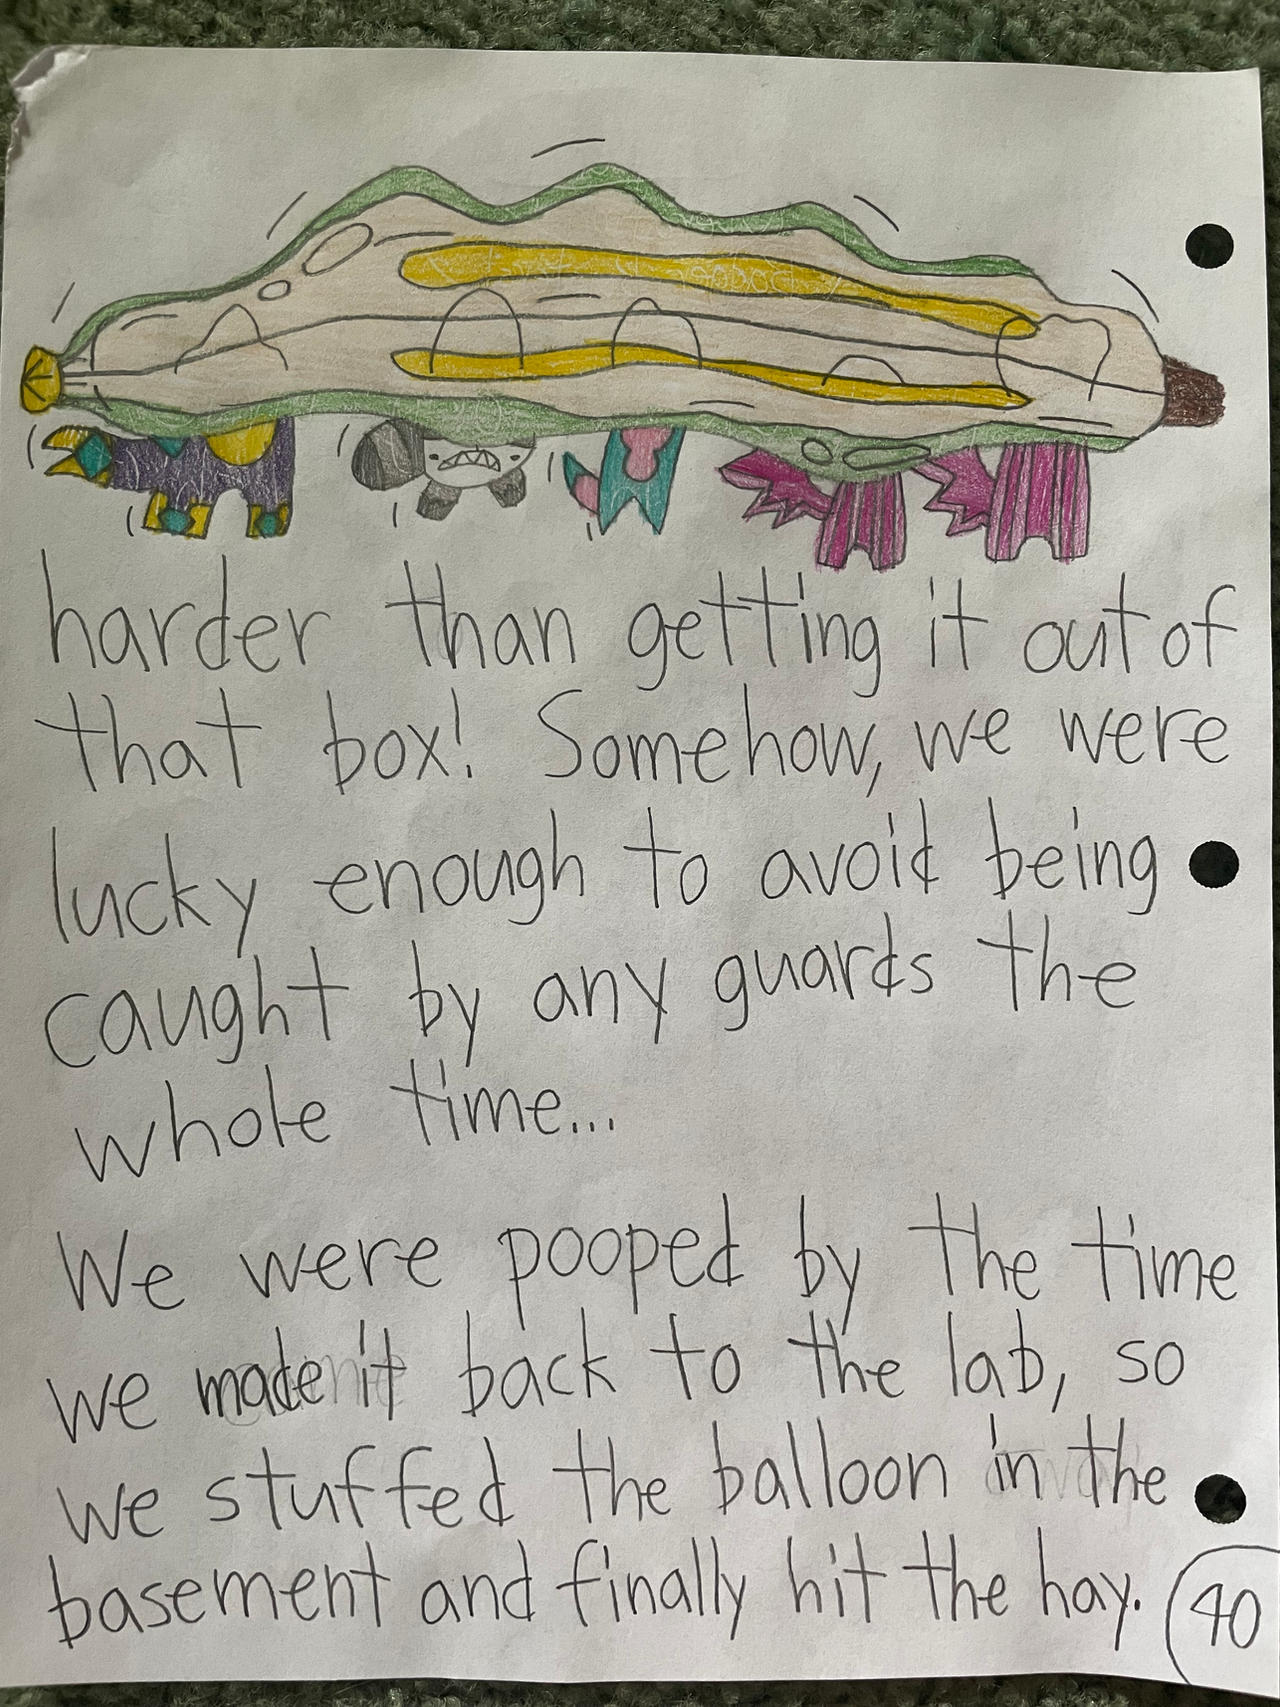 harder than getting it out of
that box! Somehow, we were
lucky enough to avoid being
caught by any guards the
whole time...
We were pooped by the time
we made it back to the lab, so
we stuffed the balloon in the
basement and finally hit the hay.
40